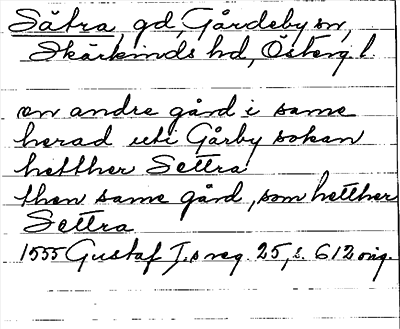 Sätra, gd, Gårdeby sn,
Skärkinds hd, Österg. l.
en andre gård i same
herad uti Gårby sokan
hetther Settra
then same gård, som hetther
Settra
1555 Gustaf I:s reg. 25, s. 612 orig.